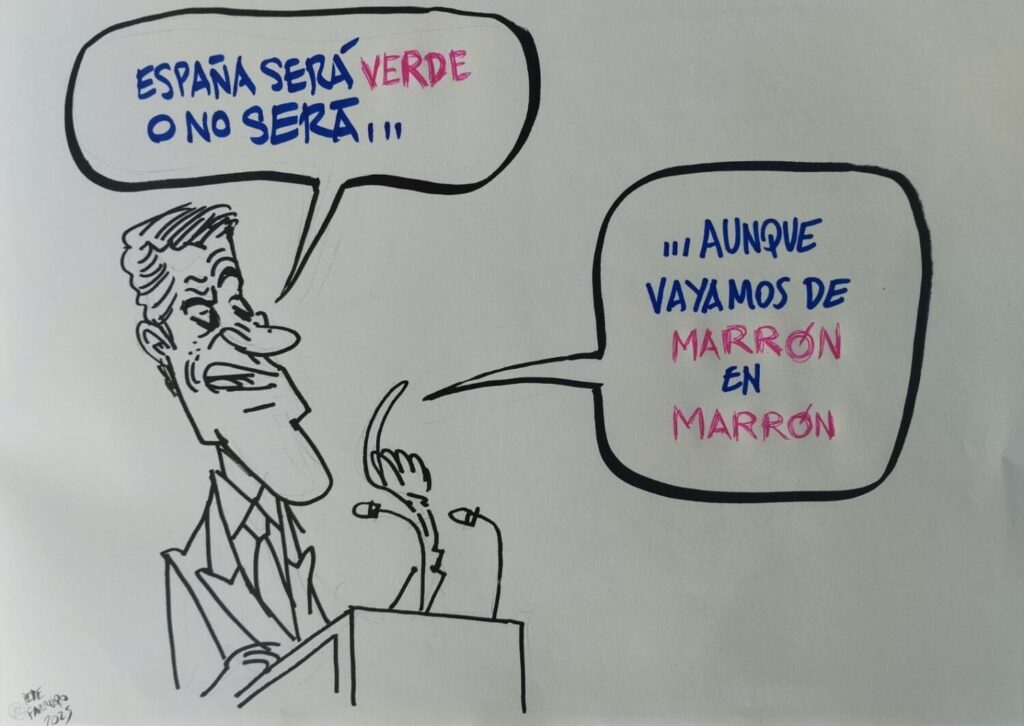 ESPAÑA SERÁ VERDE
O NO SERÁ...
...AUNQUE
VAYAMOS DE
MARRÓN
EN
MARRÓN
PEPE
FARRUQO
2025